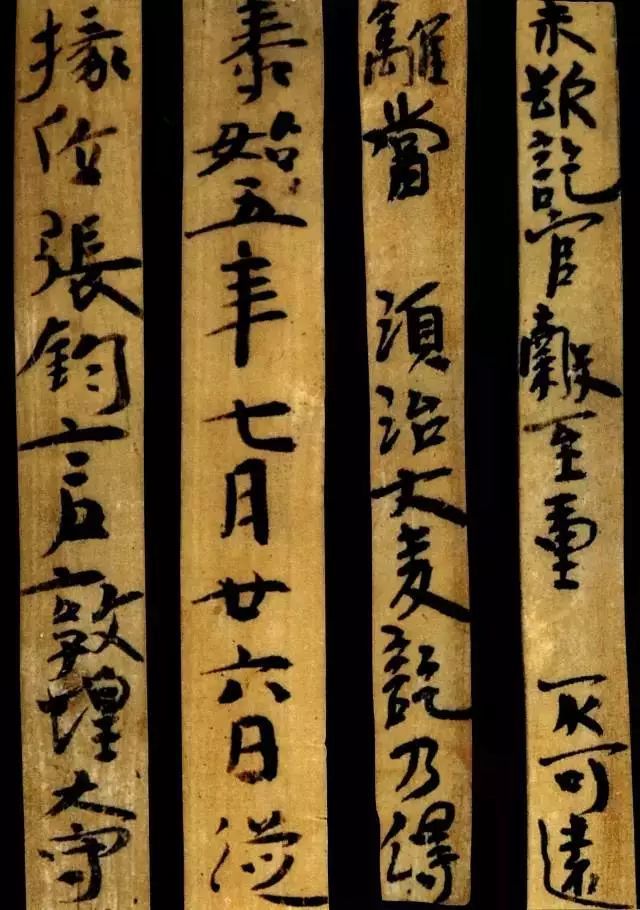 未訖官穀至重 不可遠
離當 須治大麥訖乃得
泰始五年七月廿六日從
掾位張鈞言敦煌大守